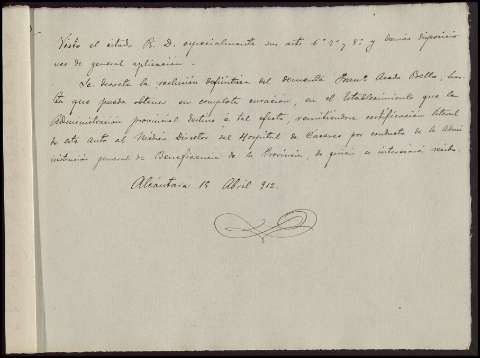 Visto el citado R. D. especialmente sus arts 6º 7º y 8º y demás disposicio
nes de general aplicación.
Se decreta la reclusión definitiva del demente Franco Acedo Bello, has
ta que pueda obtener su completa curación, en el Establecimiento que la
Administración provincial destine á tal efecto, remitiendose certificación literal
de este auto al Médico Director del Hospital de Cáceres por conducto de la Admi
nistración general de Beneficencia de la Provincia, de quien se interesará recibo.
Alcántara 15 Abril 912.